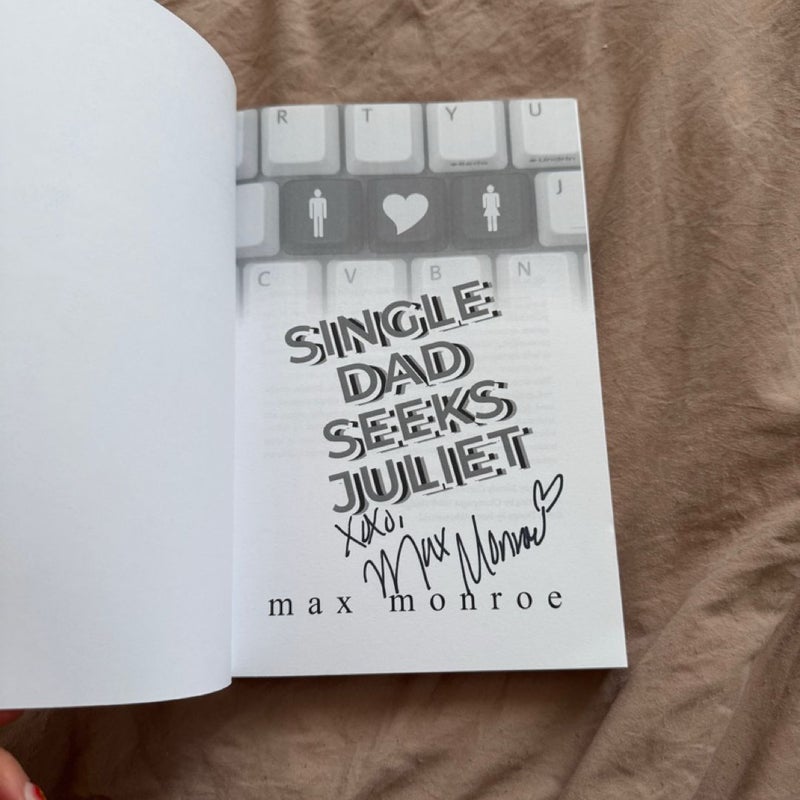 R T Y U
J
C V B N
SINGLE
DAD
SEEKS
JULIET
xoxo,
Max Monroe
max monroe